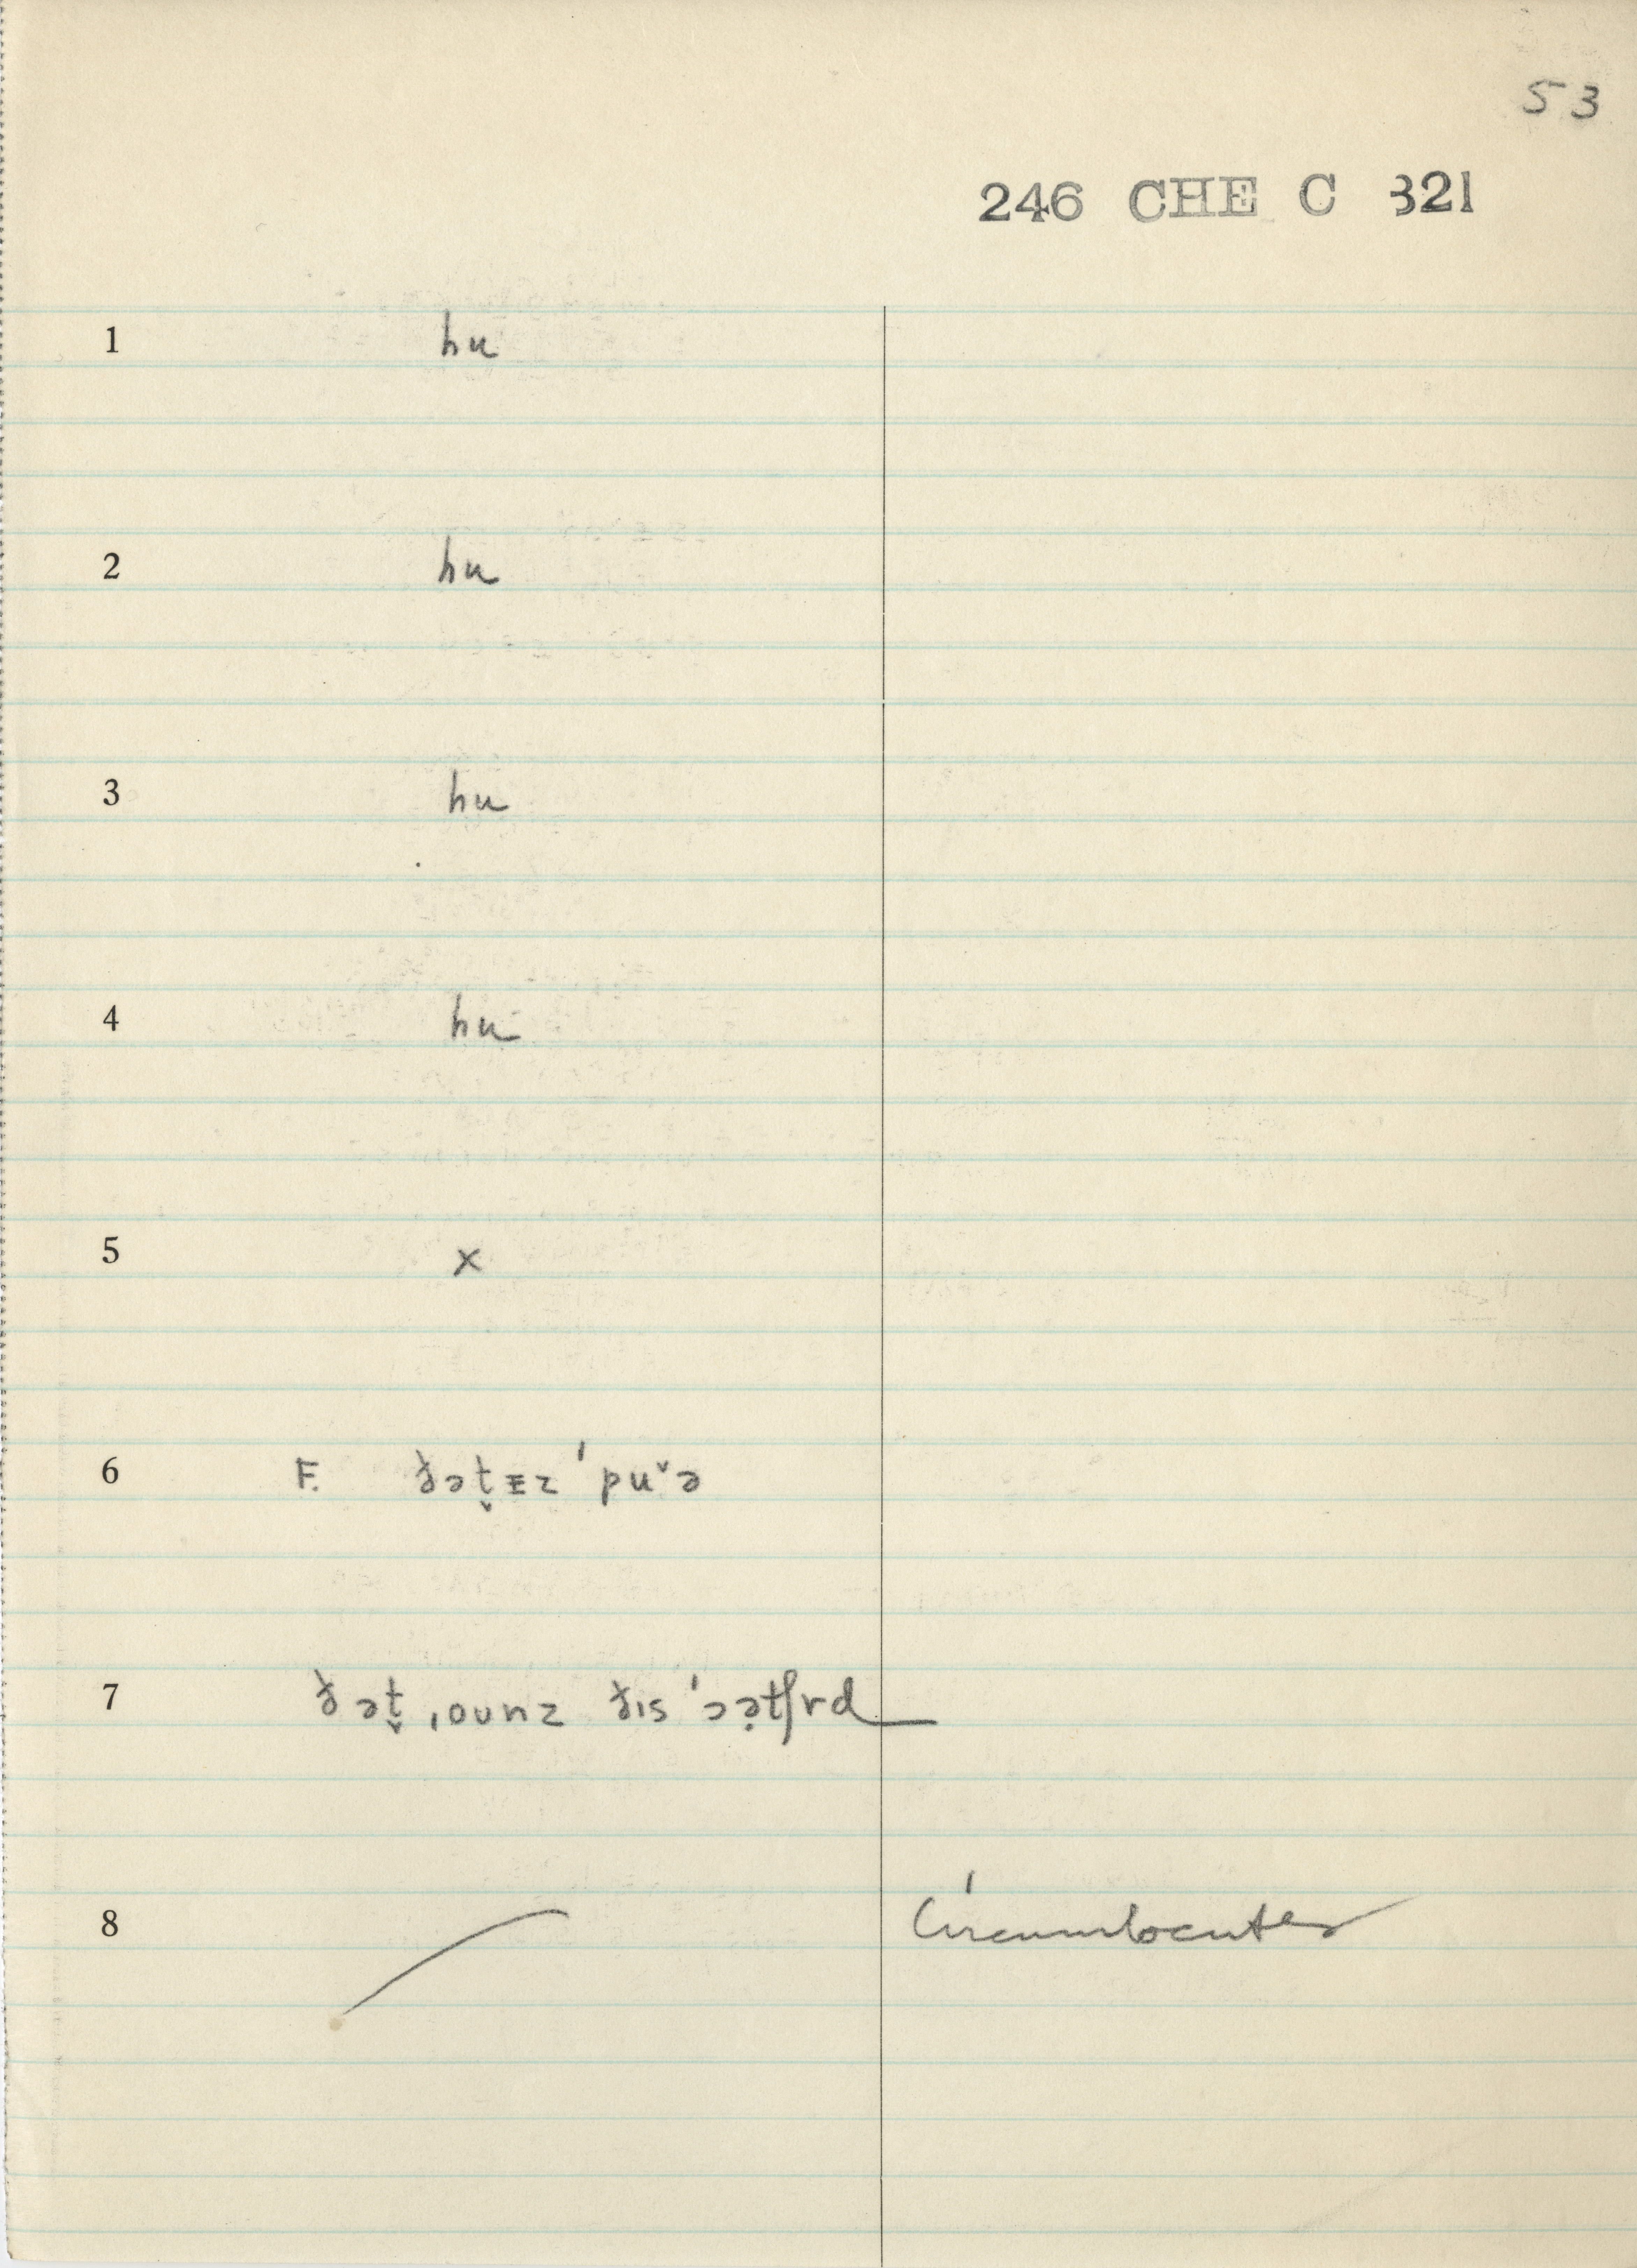 53
246 CHE C 321
1 hu
2 hu
3 hu
4 hu
5 x
6 F. ðət̬ᴇz ˈpuˇə
7 ðət̬ ˌounz ðɪs ˈɔə̣tʃrd
8 Circumlocutes